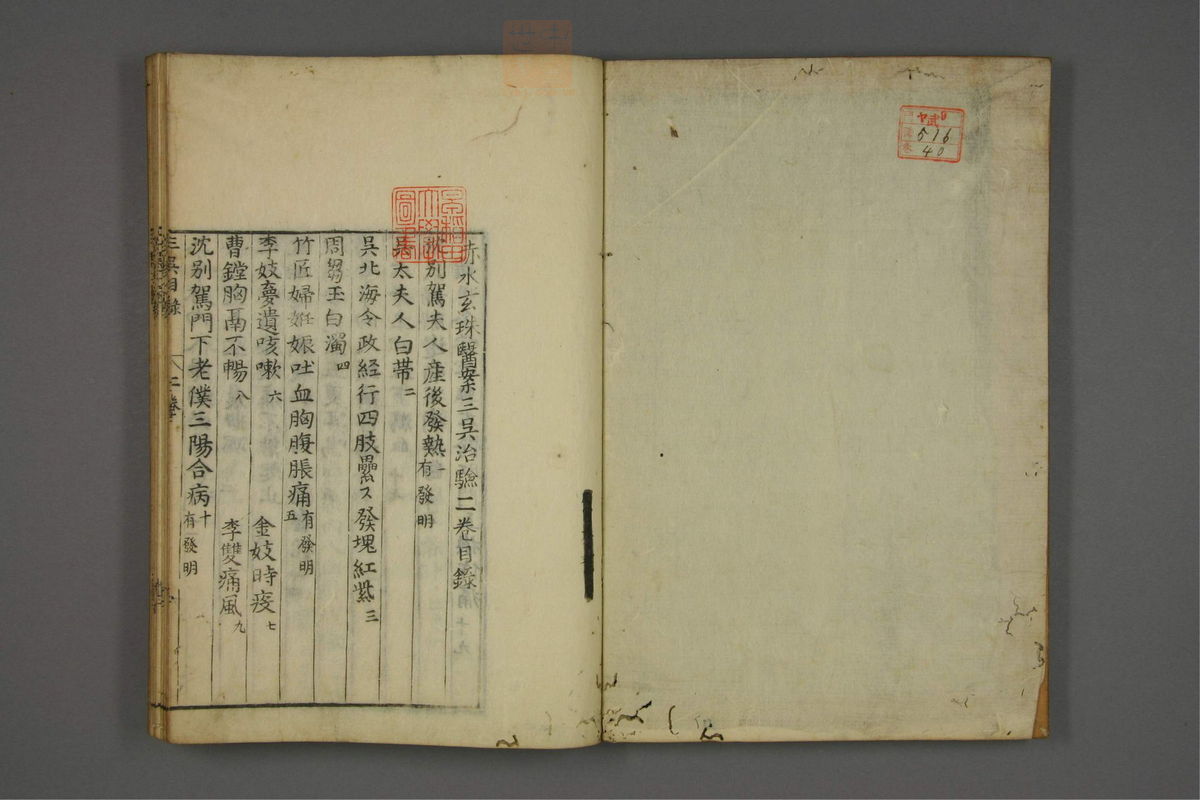 赤水玄珠醫案三吳治驗二卷目錄
沈別駕夫人產後發熱一有發明
吳太夫人白帶二
吳北海令政経行四肢壘ス發塊紅紫三
周芻玉白濁四
竹匠婦姙娠吐血胸腹脹痛五有發明
李妓夢遺咳嗽六 金妓時疫七
曹鏜胸鬲不暢八 李雙痛風九
沈別駕門下老僕三陽合病十有發明
三吳目錄 二卷
ヤ武9
516
40